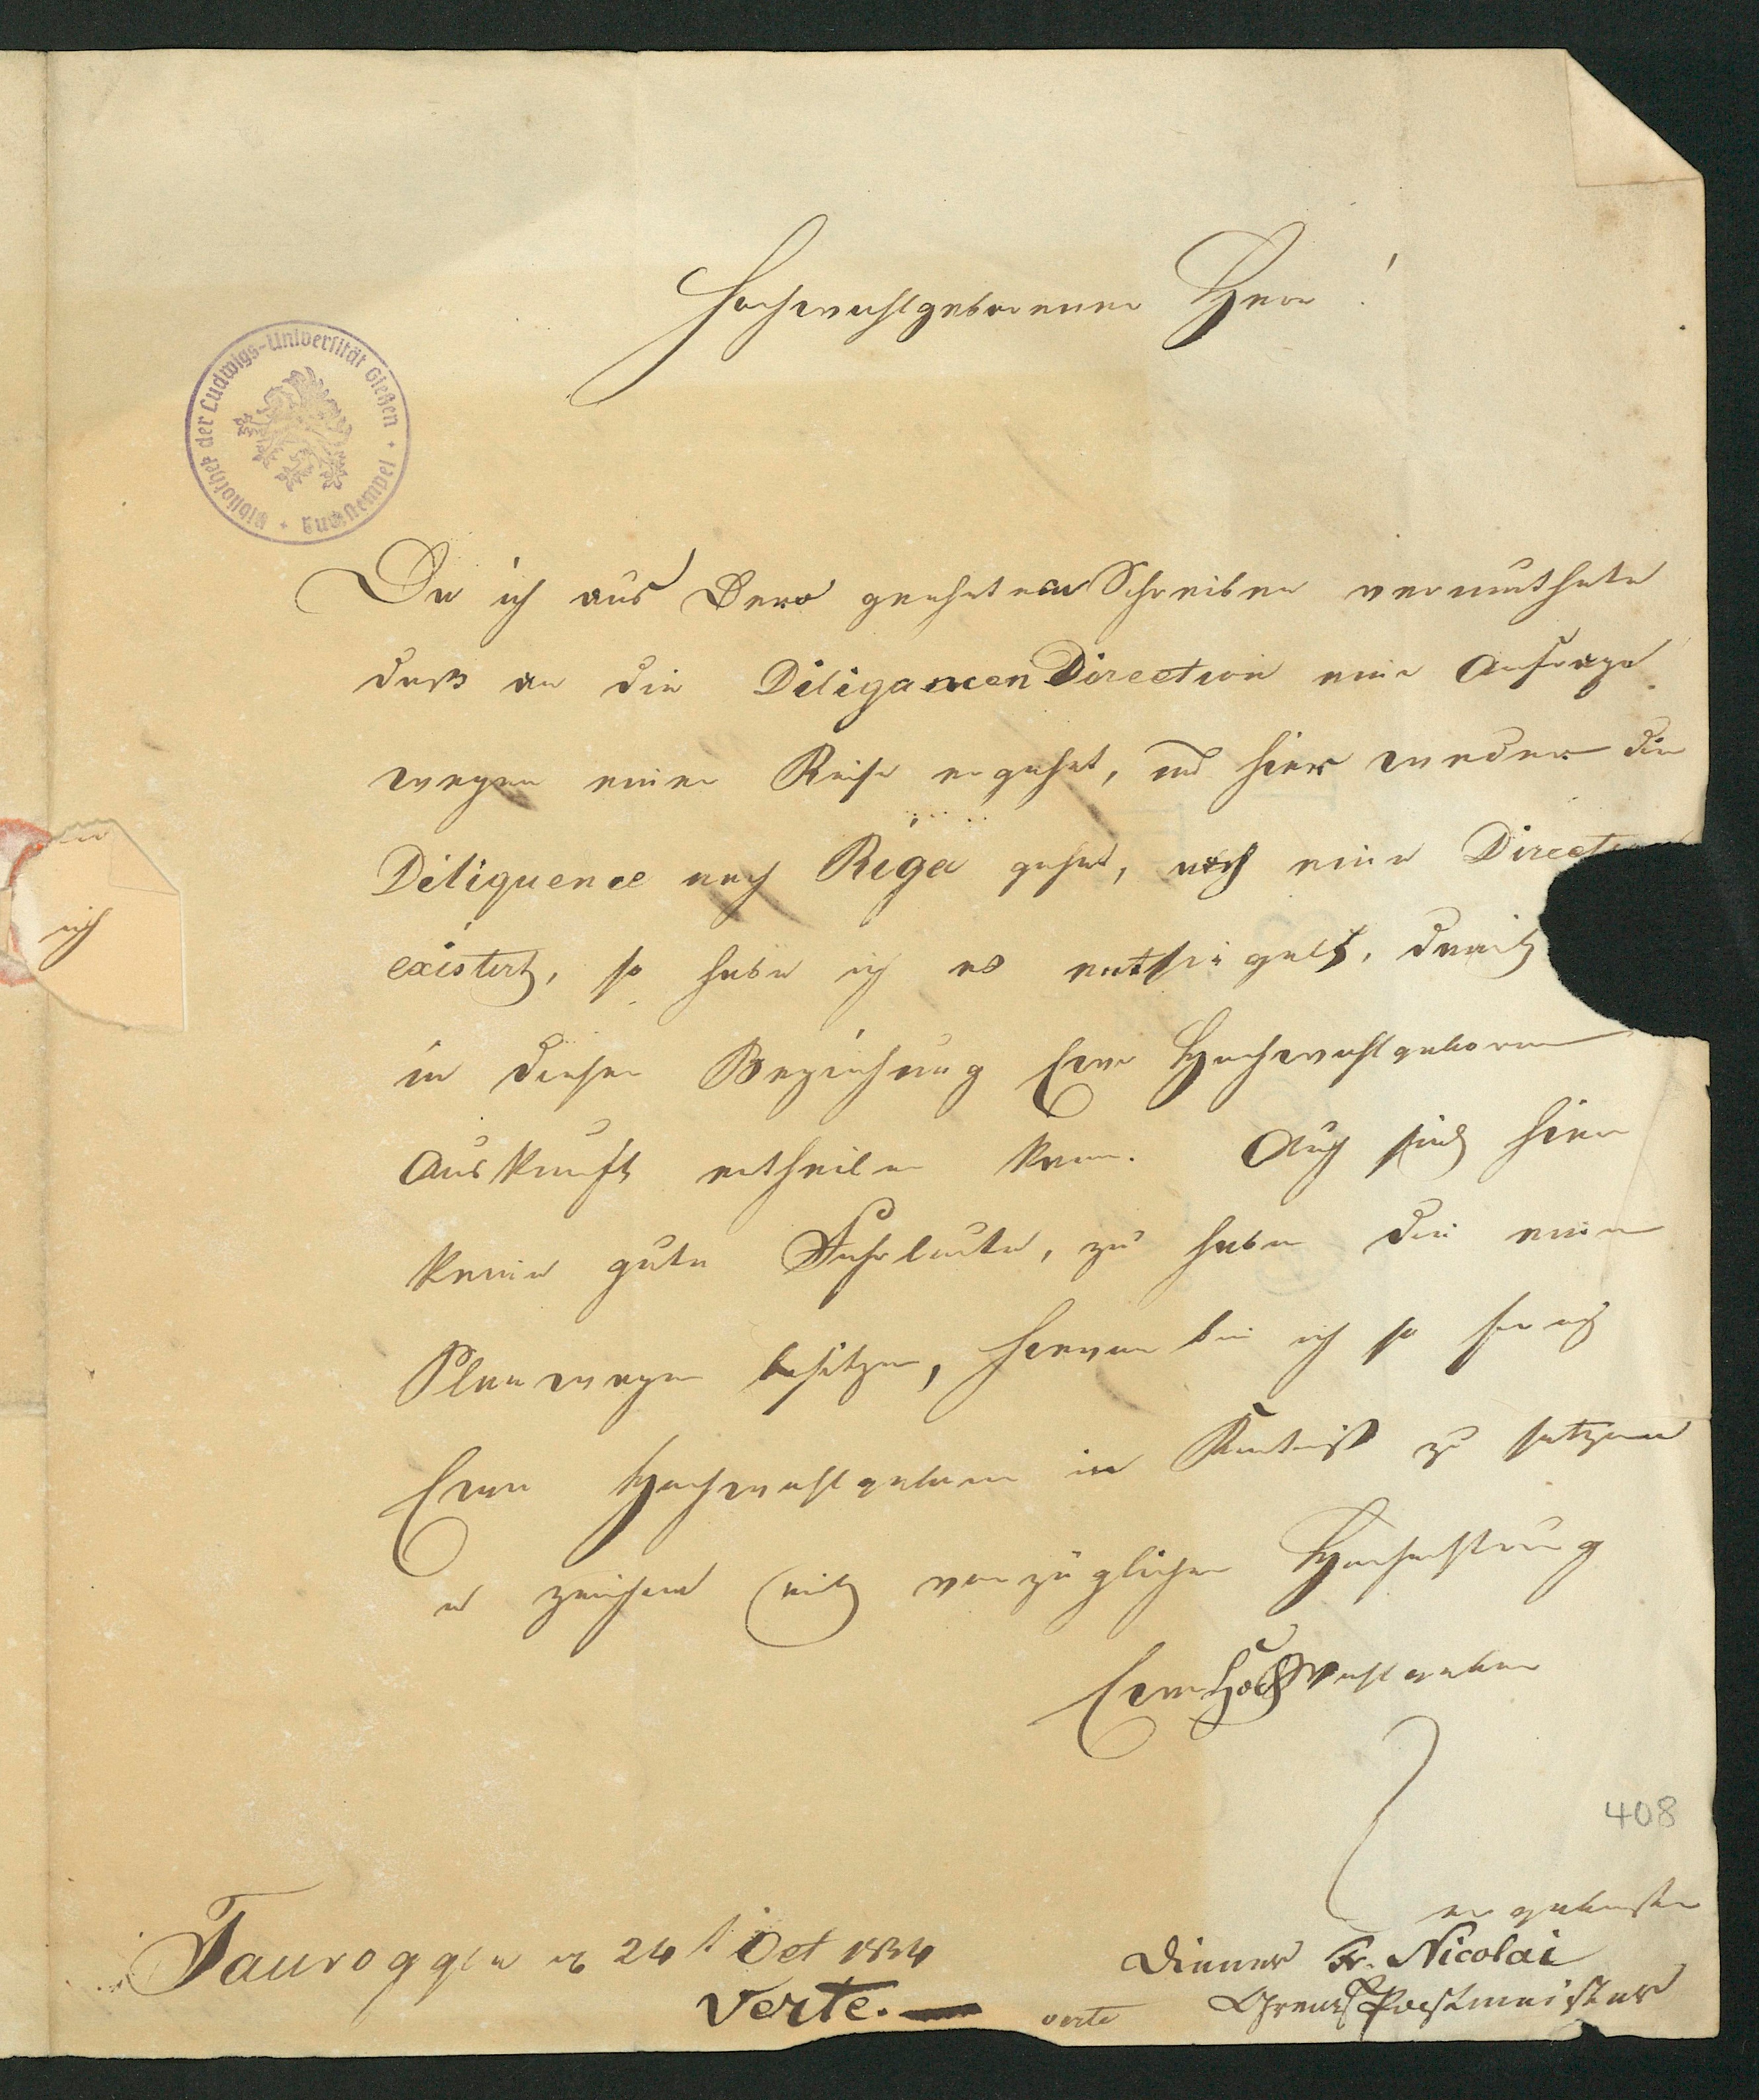 Hochwohlgeborener Herr!
Bibliothek der Ludwigs-Universität Gießen
Buchstempel
Da ich aus Dero geehrten Schreiben vermuthete
daß an die Diligencen Direction eine Anfrage
wegen einer Reise ergehet, und hier weder die
Diliquence nach Riga gehet, noch eine Direction
existirt, so habe ich es entsiegelt, damit
ich
in dieser Beziehung Euer Hochwohlgeboren
Auskunft ertheilen kann. Auch sind hier
keine gute Fuhrleute, zu haben die einen
Planwagen besitzen, hievon bin ich so frei
Euer Hochwohlgeboren in Kentniß zu setzen
u zeichne mit vorzüglicher Hochachtung
Euer Hochwohlgeboren
408
ergebenster
Tauroggen 24t Oct 1834
Diener Fr. Nicolai
Verte.
verte
Grenz Postmeister